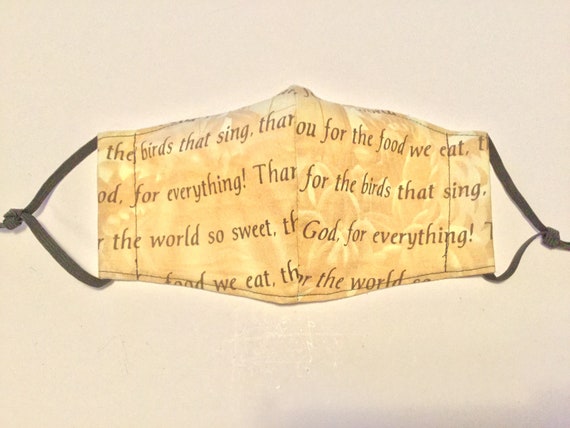 the birds that sing, than
od, for everything! Than
r the world so sweet, th
food we eat, th
ou for the food we eat, t
for the birds that sing,
God, for everything! T
or the world so